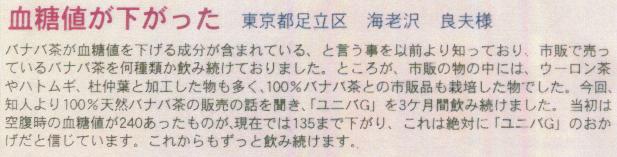 血糖値が下がった 東京都足立区 海老沢 良夫様
バナバ茶が血糖値を下げる成分が含まれている、と言う事を以前より知っており、市販で売っ
ているバナバを何種類か飲み続けておりました。ところが、市販の物の中には、ウーロン茶
やハトムギ、杜仲葉と加工した物も多く、100%バナバ茶との市販品も栽培した物でした。今回、
知人より100%天然バナバ茶の販売の話を聞き、「ユニバG」を3ケ月間飲み続けました。当初は
空腹時の血糖値が240あったものが、現在では135まで下がり、これは絶対に「ユニバG」のおか
げだと信じています。これからもずっと飲み続けます。